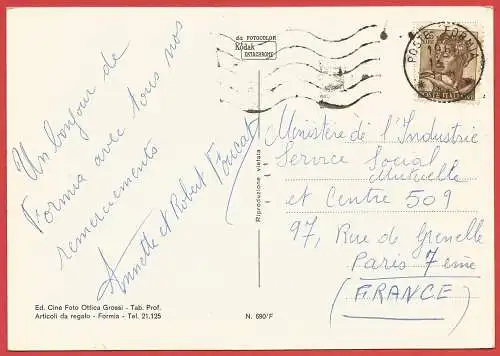 da FOTOCOLOR
Kodak
EKTACHROME
POSTE FORMIA
POSTE ITALIANE
Un bonjour de
Formia avec tous nos
remerciements
Annette et Robert
Riproduzione vietata
Ministère de l'Industrie
Service Social
Mutuelle
et Centre 509
97, Rue de Grenelle
Paris 7eme
(FRANCE)
Ed. Cine Foto Ottica Grossi - Tab. Prof.
Articoli da regalo - Formia - Tel. 21.125
N. 690/F